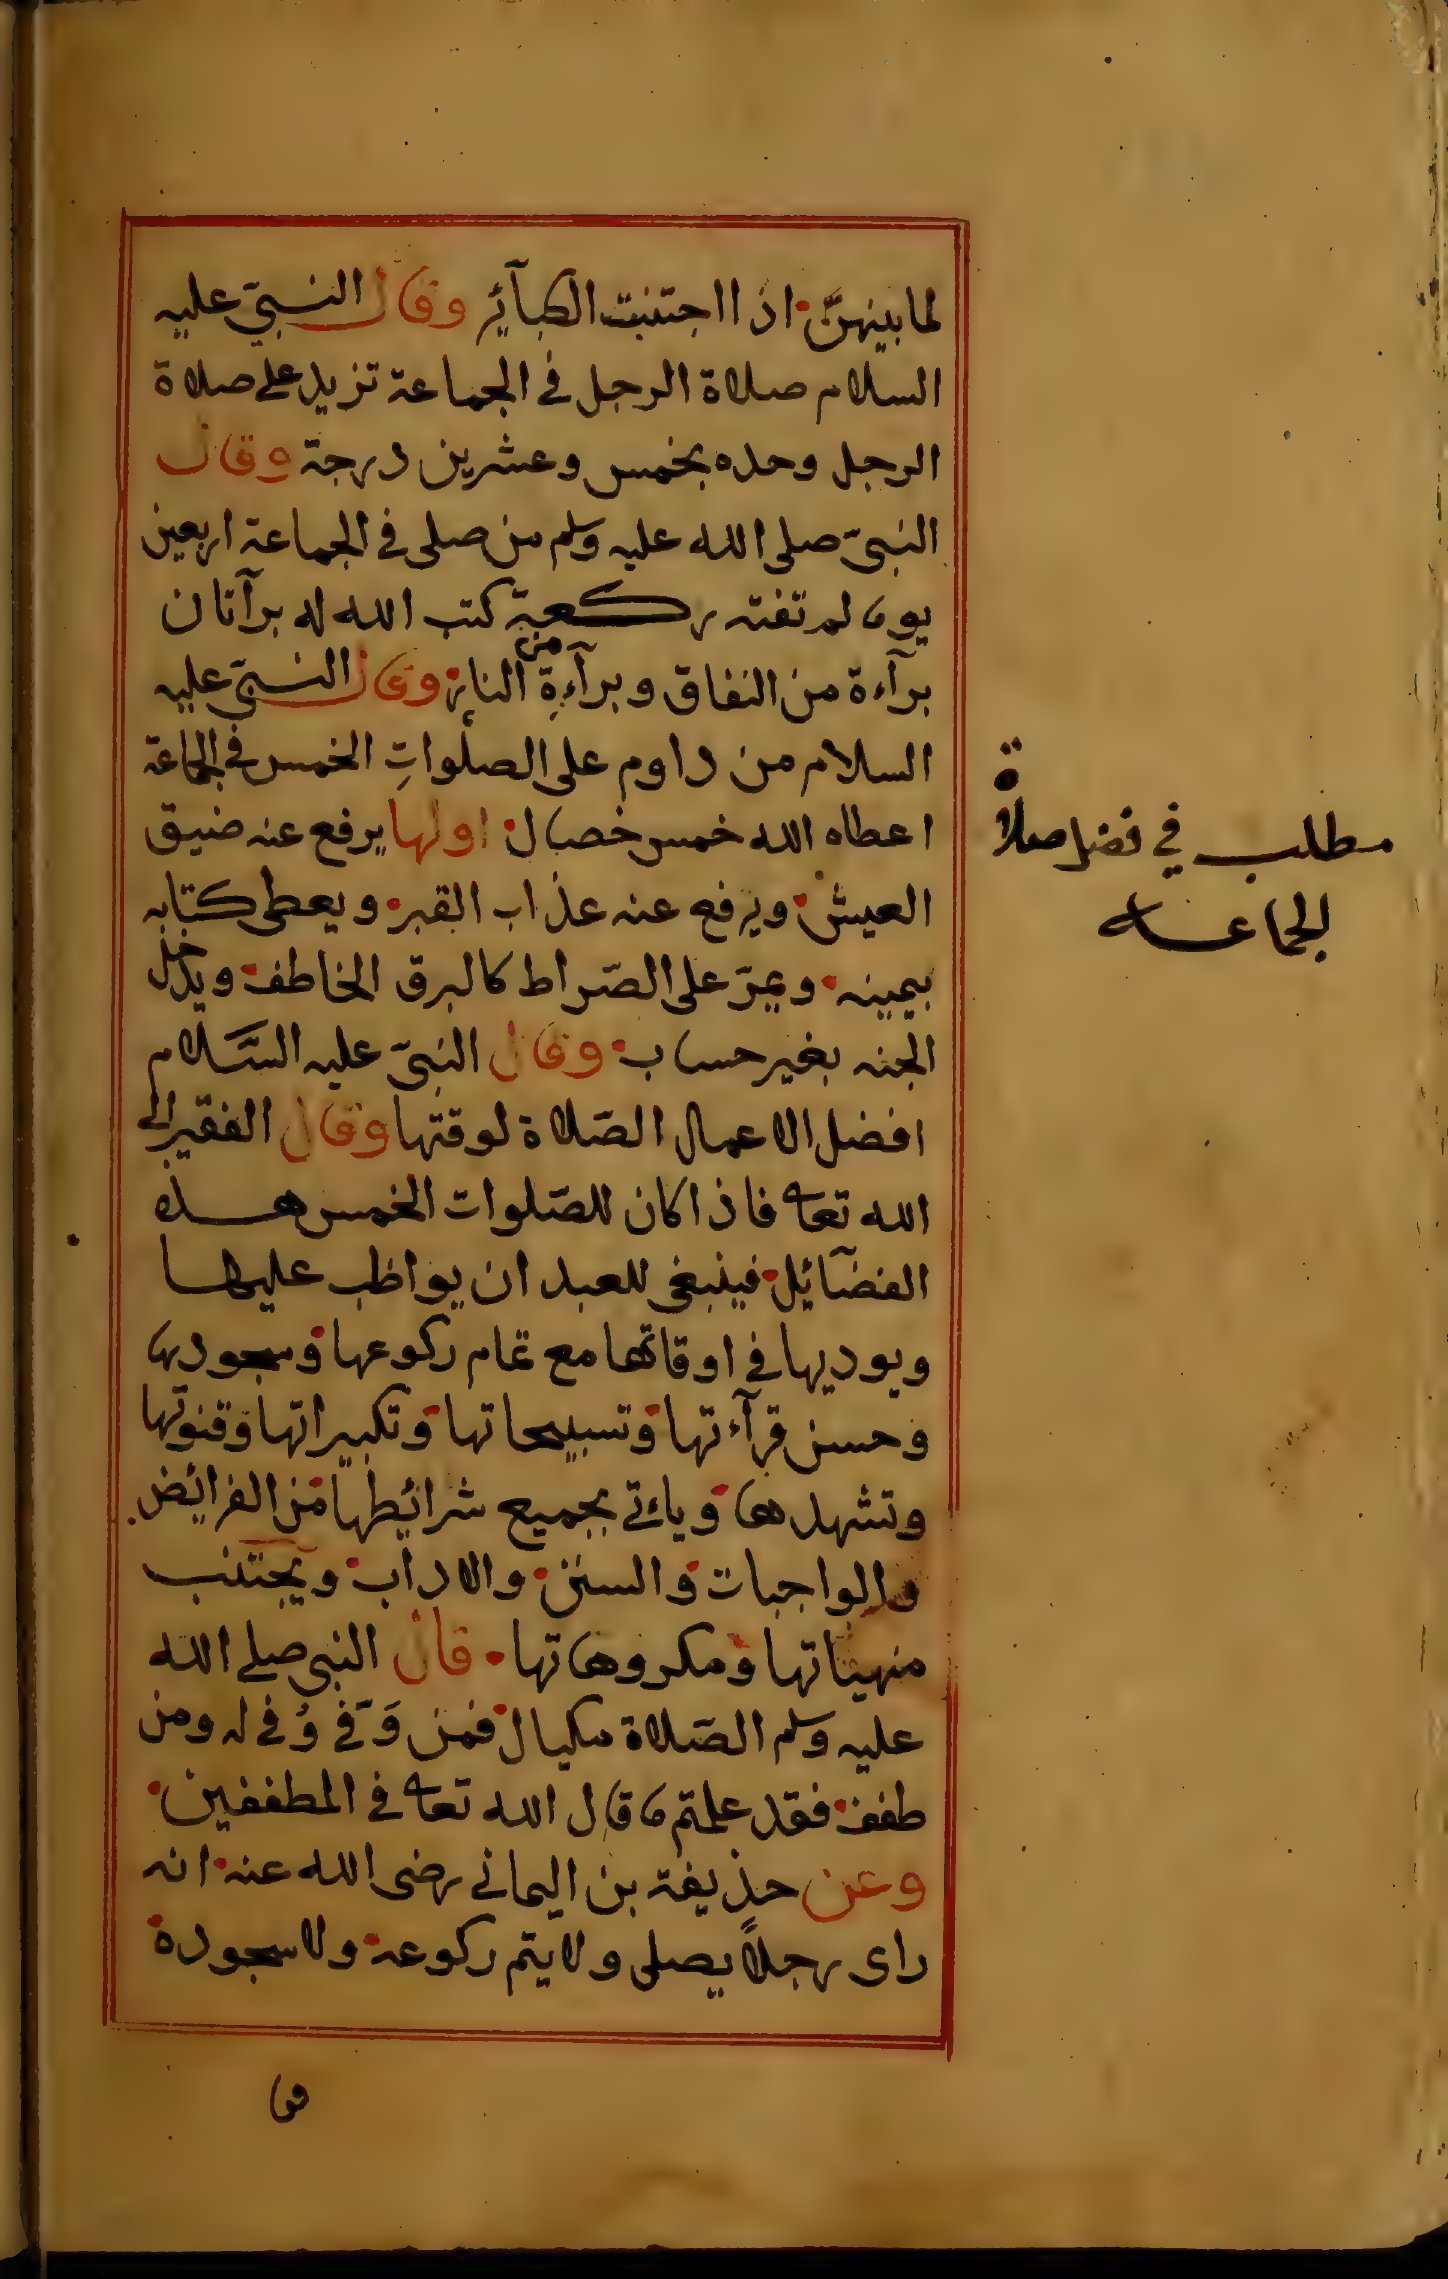 لما بينهنّ اذا اجتنبت الكبآئر وقال النبيّ عليه
السلام صلاة الرجل في الجماعة تزيد على صلاة
الرجل وحده بخمس وعشرين درجة وقال
النبيّ صلى الله عليه وسلم من صلى في الجماعة اربعين
يوما لم تفته ركعة كتب الله له برآتان
برآءة من النفاق وبرآءةٍ من النار وقال النبيّ عليه
السلام من داوم على الصلواتِ الخمس في الجماعة
اعطاه الله خمس خصال اولها يرفع عنه ضيق
العيش ويرفع عنه عذاب القبر ويعطى كتابه
بيمينه ويمرّ على الصّراط كالبرق الخاطف ويدخل
الجنه بغير حساب وقال النبيّ عليه السَّلام
افضل الاعمال الصّلاة لوقتها وقال الفقير الى
الله تعالى فاذا كان للصّلوات الخمس هذه
الفضآئيل فينبغي للعبد ان يواظب عليها
ويوديها في اوقاتها مع تمام ركوعها وسجودها
وحسن قرآءتها وتسبيحاتها وتكبيراتها وقنوتها
وتشهدها وياءتي بجميع شرائيطها من الفرائيض
والواجبات والسنن والاداب ويجتنب
منهياتها ومكروهاتها قال النبي صلى الله
عليه وسلم الصّلاة مكيال فمن وَفّي وُفي له ومن
طفف فقد علمتم ما قال الله تعالى في المطففين
وعن حذيفة بن اليماني رضى الله عنه انه
راى رجلاً يصلى ولا يتم ركوعه ولا سجوده
مطلب في فضل صلاة
الجماعة